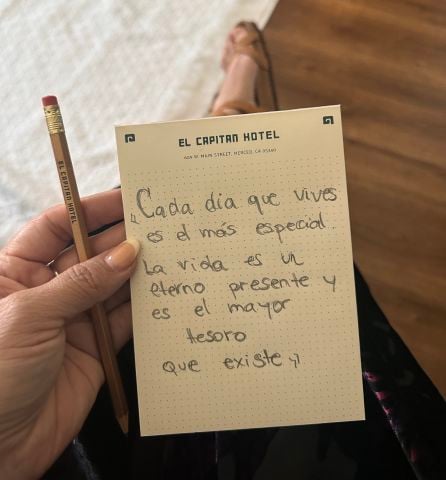 EL CAPITAN HOTEL
609 W. MAIN STREET, MERCED, CA 95340
"Cada día que vives
es el más especial.
La vida es un
eterno presente y
es el mayor
tesoro
que existe"
EL CAPITAN HOTEL